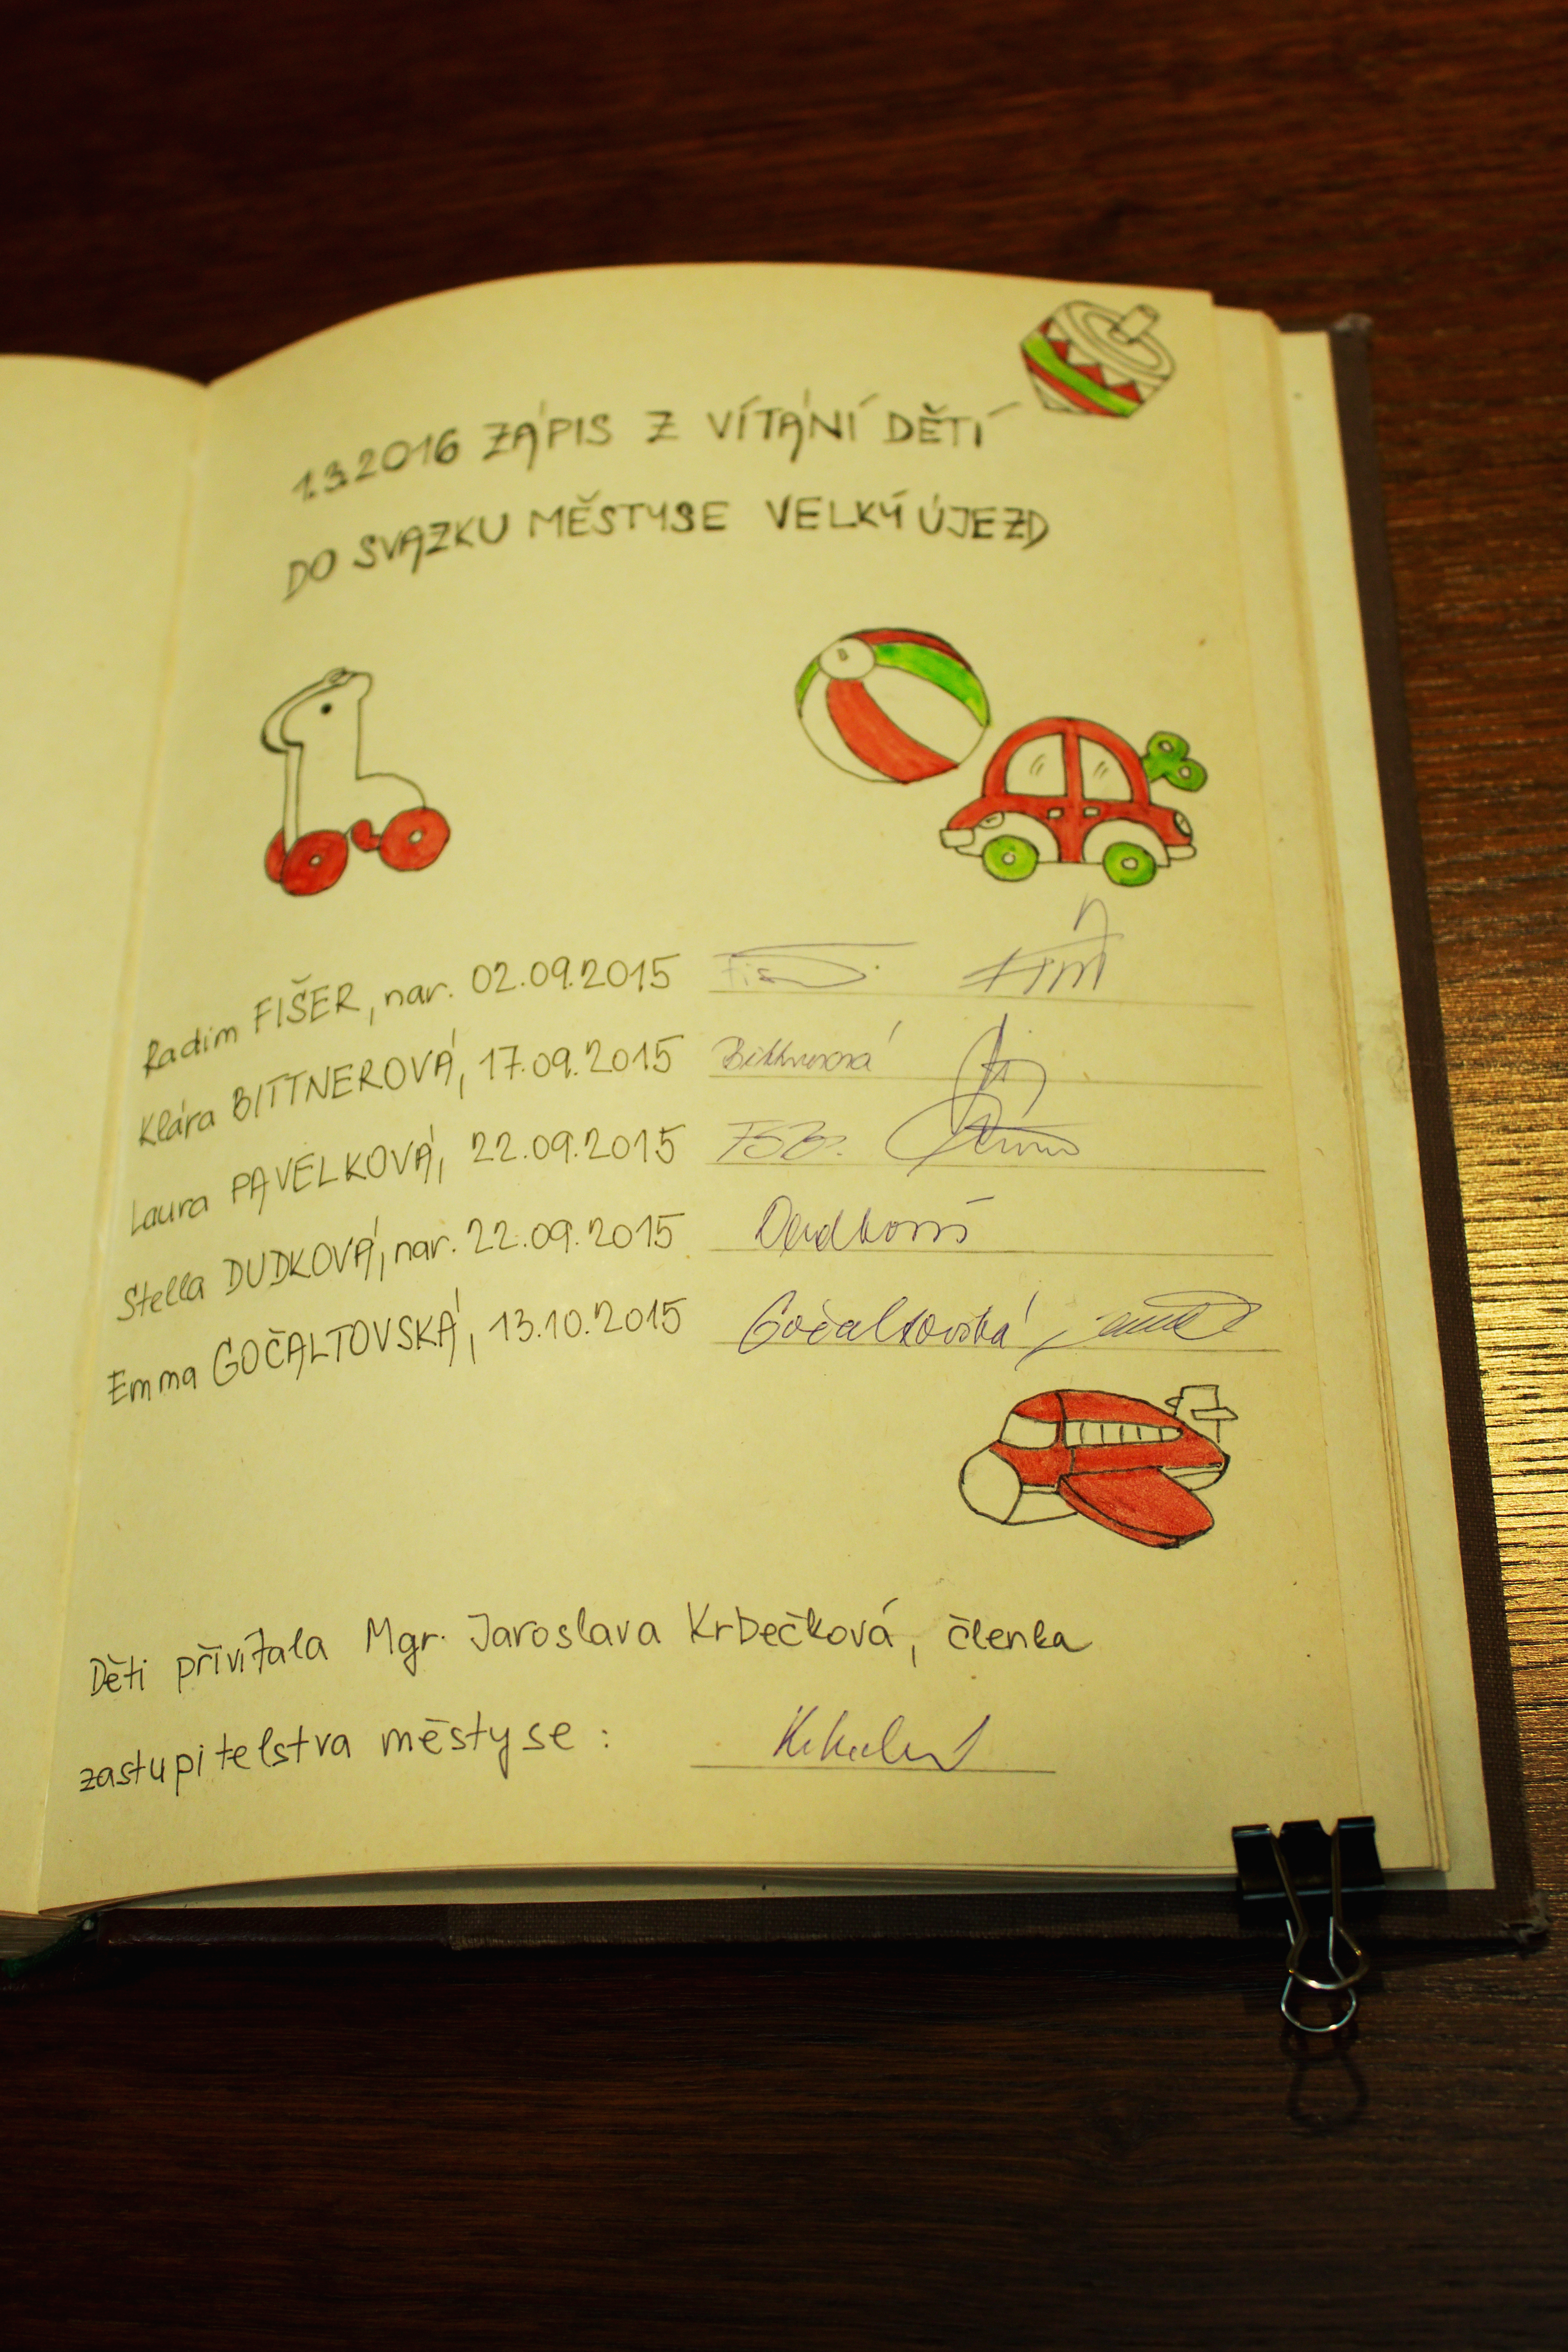 1.3.2016 ZÁPIS Z VÍTÁNÍ DĚTÍ
DO SVAZKU MĚSTYSE VELKÝ ÚJEZD
Radim FIŠER, nar. 02.09.2015
Klára BITTNEROVÁ, 17.09.2015 Bittnerová
Laura PAVELKOVÁ, 22.09.2015
Stella DUDKOVÁ, nar. 22.09.2015 Dudková
Emma GOČALTOVSKÁ, 13.10.2015 Gočaltovská
Děti přivítala Mgr. Jaroslava Krbečková, členka
zastupitelstva městyse :